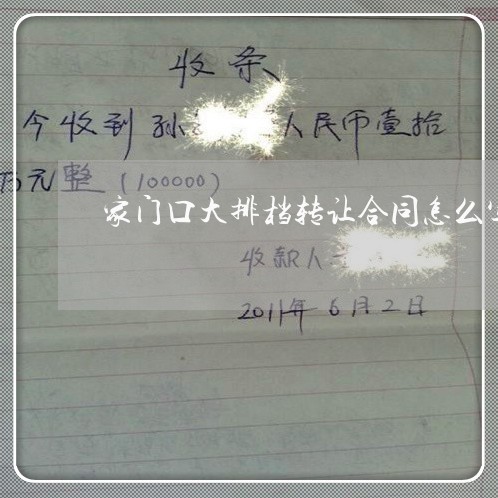 收条
今收到孙 人民币壹拾
万元整(100000)
家门口大排档转让合同怎么
收款人
2011年6月2日